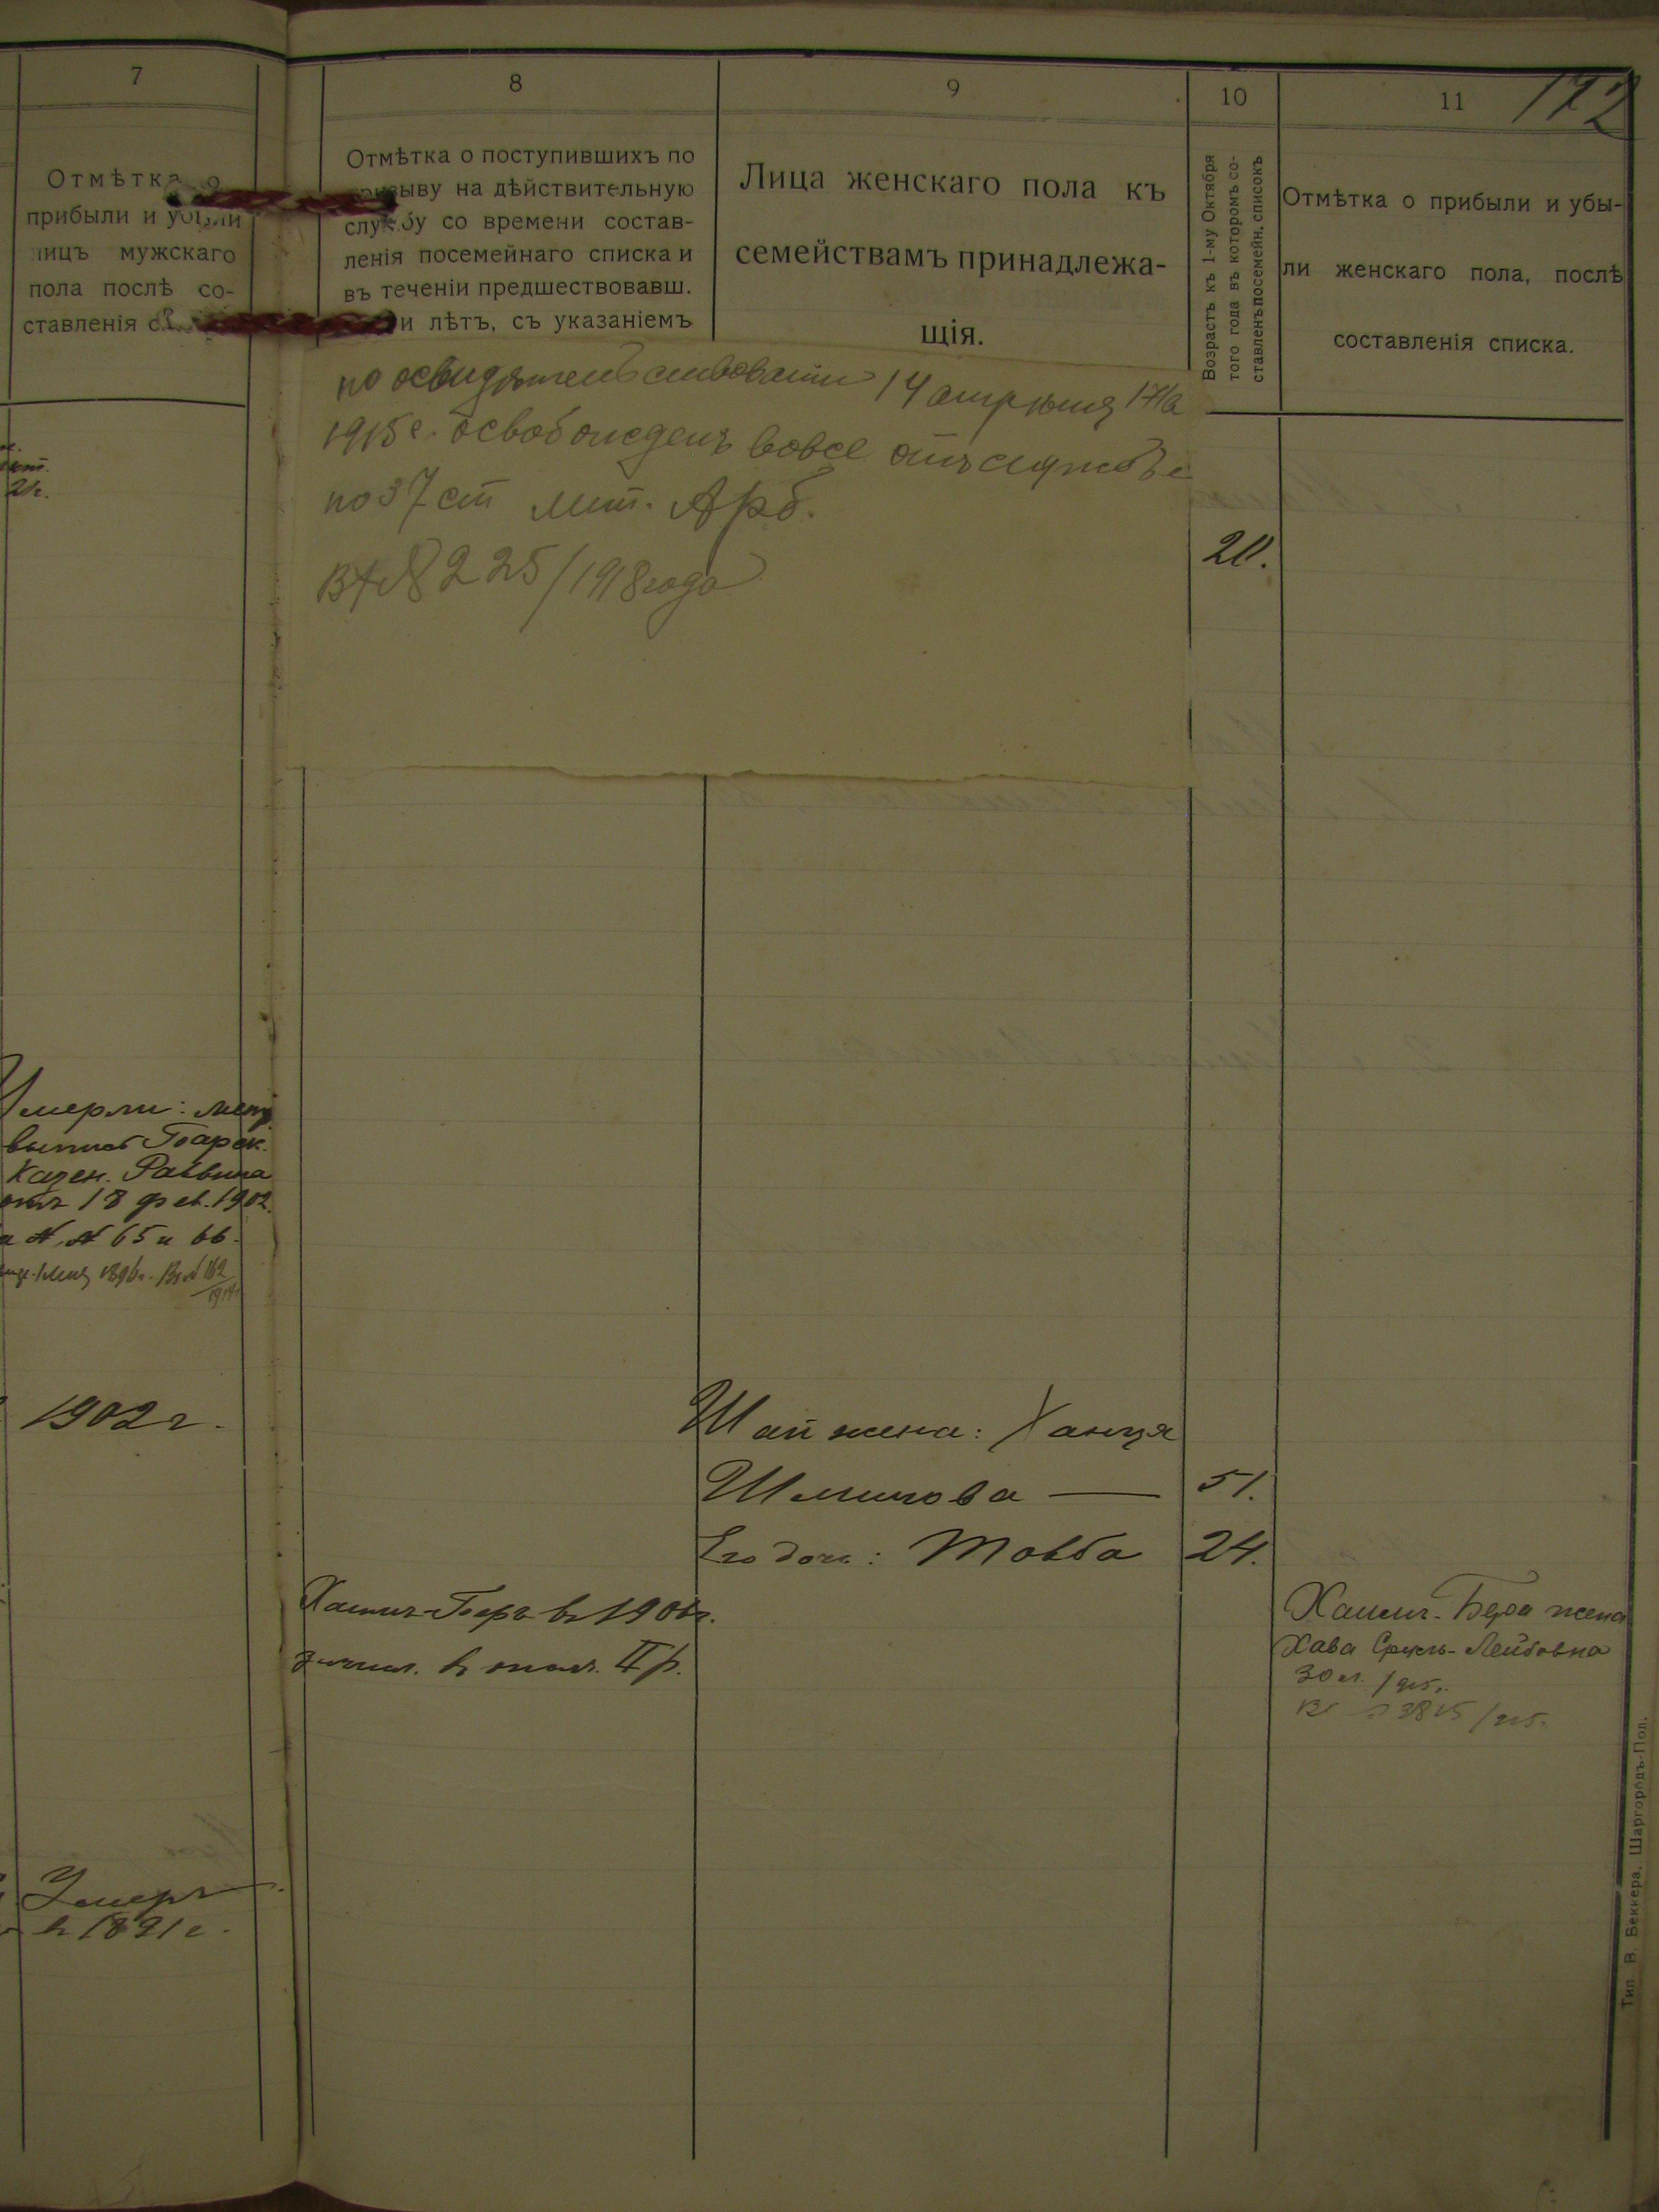 7
Отмѣтка о
прибыли и убыли
лицъ мужскаго
пола послѣ со-
ставленія
8
Отмѣтка о поступившихъ по
призыву на дѣйствительную
службу со времени состав-
ленія посемейнаго списка и
въ теченіи предшествовавш.
и лѣтъ, съ указаніемъ
9
Лица женскаго пола къ
семействамъ принадлежа-
щія.
10
Возрастъ къ 1-му Октября
того года въ которомъ со-
ставленъ посемейн. списокъ
11
Отмѣтка о прибыли и убы-
ли женскаго пола, послѣ
составленія списка.
172
по освидѣтельствованіи 14
1915 г. освобожденъ вовсе отъ службы
по 37 ст лит.
В № 225/1918 года
20.
Умерли:
Казен. Раввина
отъ 18 фев. 1902.
а №№ 65 и 66.
1896г. 162
1902 г.
Шаи жена: Ханця
Шмилова — 51.
Его дочь: Товба 24.
Хаимъ-Беръ въ 190
зачисл. в опол. II р.
Хаимъ-Бера жена
Хава Сруль-Лейбовна
30 л. 1915.
3815/915.
Умеръ
въ 1891 г.
Тип. В. Беккера, Шаргородъ-Под.